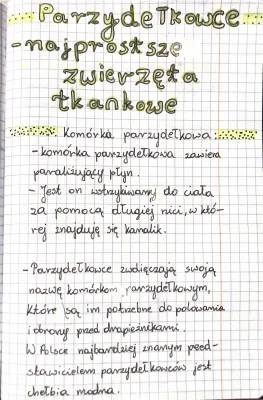 Parzydełkowce
-najprostsze
zwierzęta
tkankowe
Komórka parzydełkowa:
- komórka parzydełkowa zawiera
paraliżujący płyn.
- Jest on wstrzykiwany do ciała
za pomocą długiej nici, w któ-
rej znajduję się kanalik.
- Parzydełkowce zwdięczają swoją
nazwę komórkom parzydełkowym,
które są im potrzebne do polowania
i obrony przed drapieżnikami.
W Polsce najbardziej znanym pood-
stawicielem parzydełkowców jest
chełbia modna.